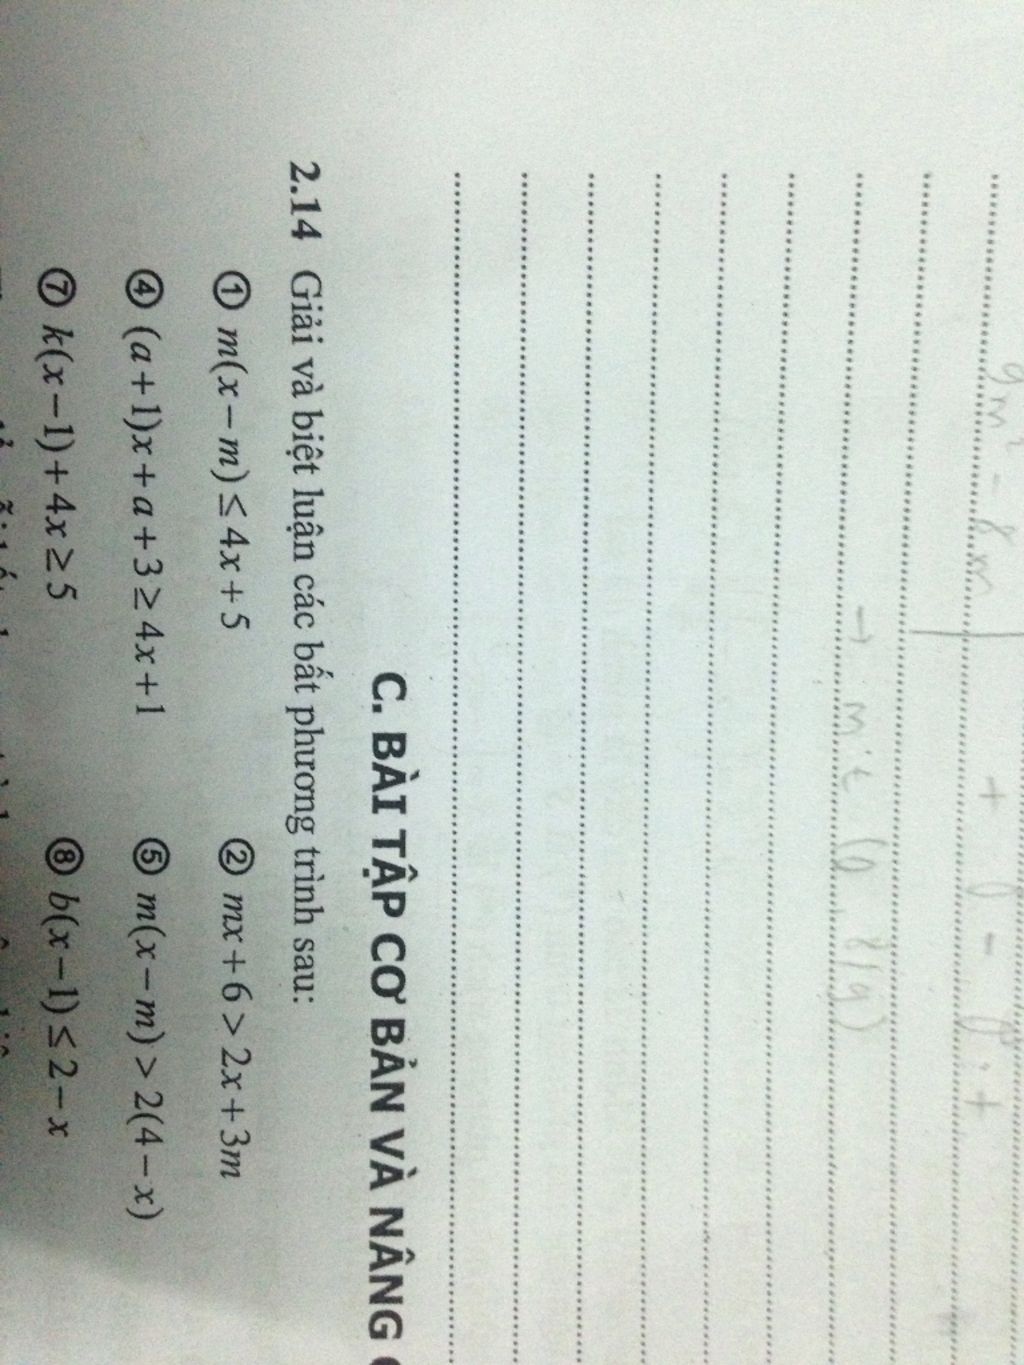 9m² - 8m + 0 - 0 +
→ m ∈ (0, 8/9)
C. BÀI TẬP CƠ BẢN VÀ NÂNG
2.14 Giải và biệt luận các bất phương trình sau:
① m(x − m) ≤ 4x + 5 ② mx + 6 > 2x + 3m
④ (a + 1)x + a + 3 ≥ 4x + 1 ⑤ m(x − m) > 2(4 − x)
⑦ k(x − 1) + 4x ≥ 5 ⑧ b(x − 1) ≤ 2 − x